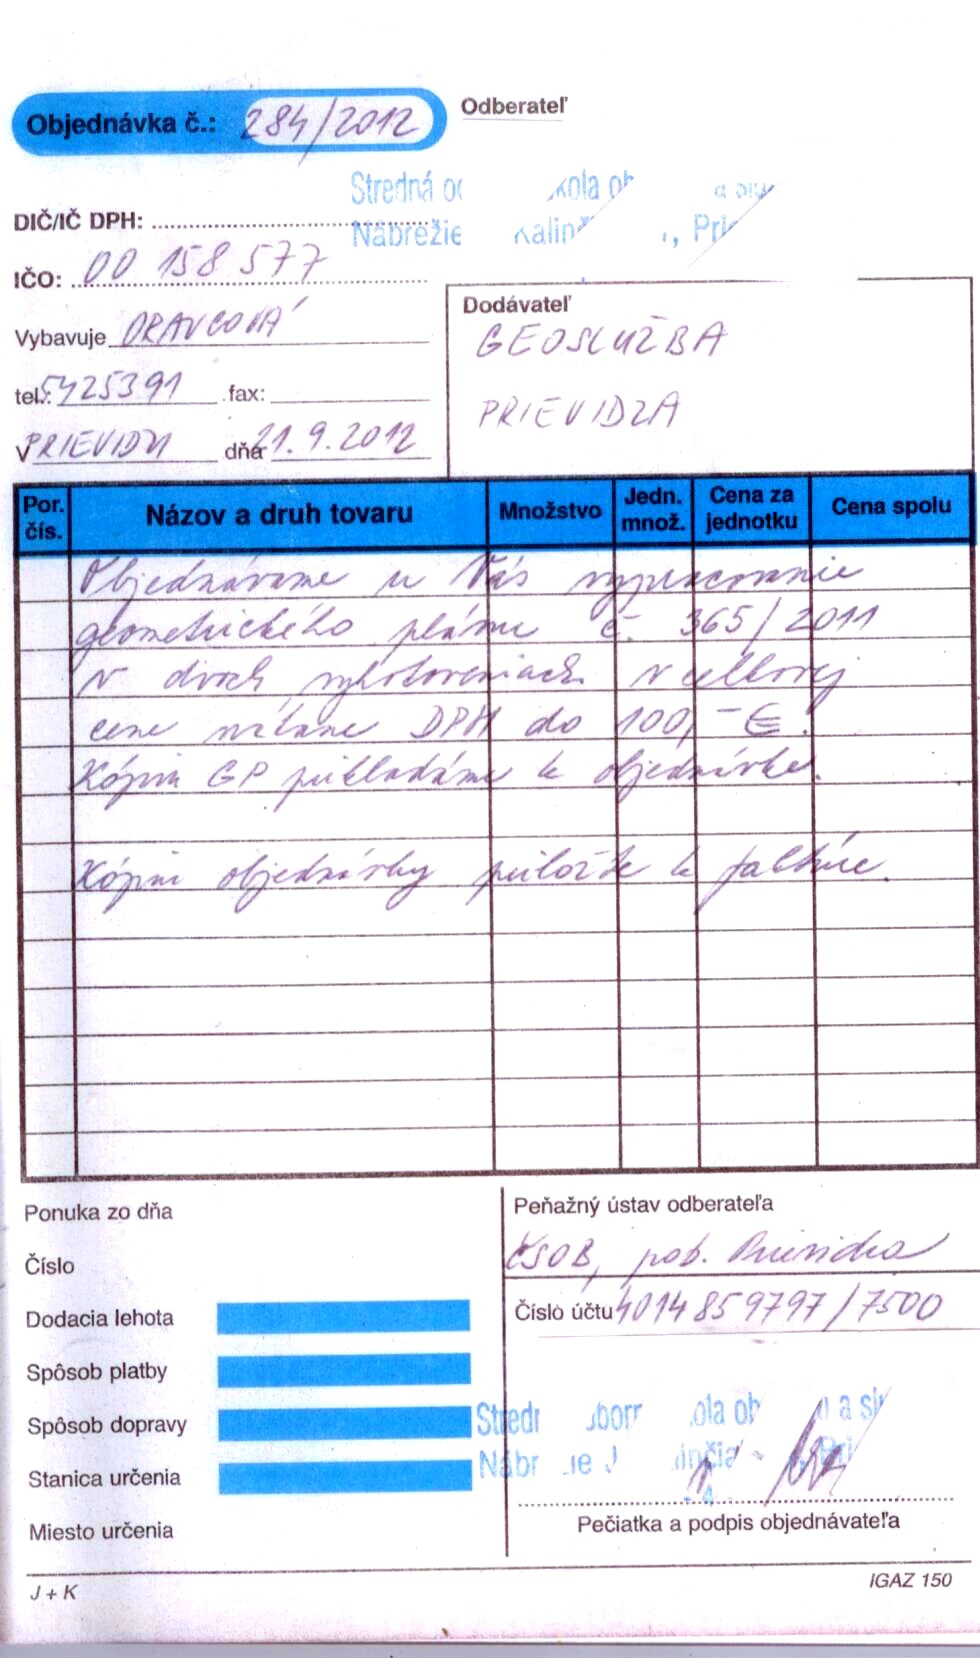 Objednávka č.: 284/2012
Odberateľ
Stredná škola
DIČ/IČ DPH:
Nábrežie
IČO: 00 158 577
Vybavuje ORAVCOVÁ
tel.: 5425391 fax:
V PRIEVIDZI dňa 21.9.2012
Dodávateľ
GEOSLUŽBA
PRIEVIDZA
Por. čís. Názov a druh tovaru Množstvo Jedn. množ. Cena za jednotku Cena spolu
Objednávame u Vás vypracovanie
geometrického plánu č. 365/2011
v dvoch vyhotoveniach v celkovej
cene vrátane DPH do 100,-€.
Kópiu GP prikladáme k objednávke.
Kópiu objednávky priložte k faktúre.
Ponuka zo dňa
Číslo
Dodacia lehota
Spôsob platby
Spôsob dopravy
Stanica určenia
Miesto určenia
Peňažný ústav odberateľa
ČSOB, pob. Prievidza
Číslo účtu 4014859797/7500
- 4 -
Pečiatka a podpis objednávateľa
J + K
IGAZ 150